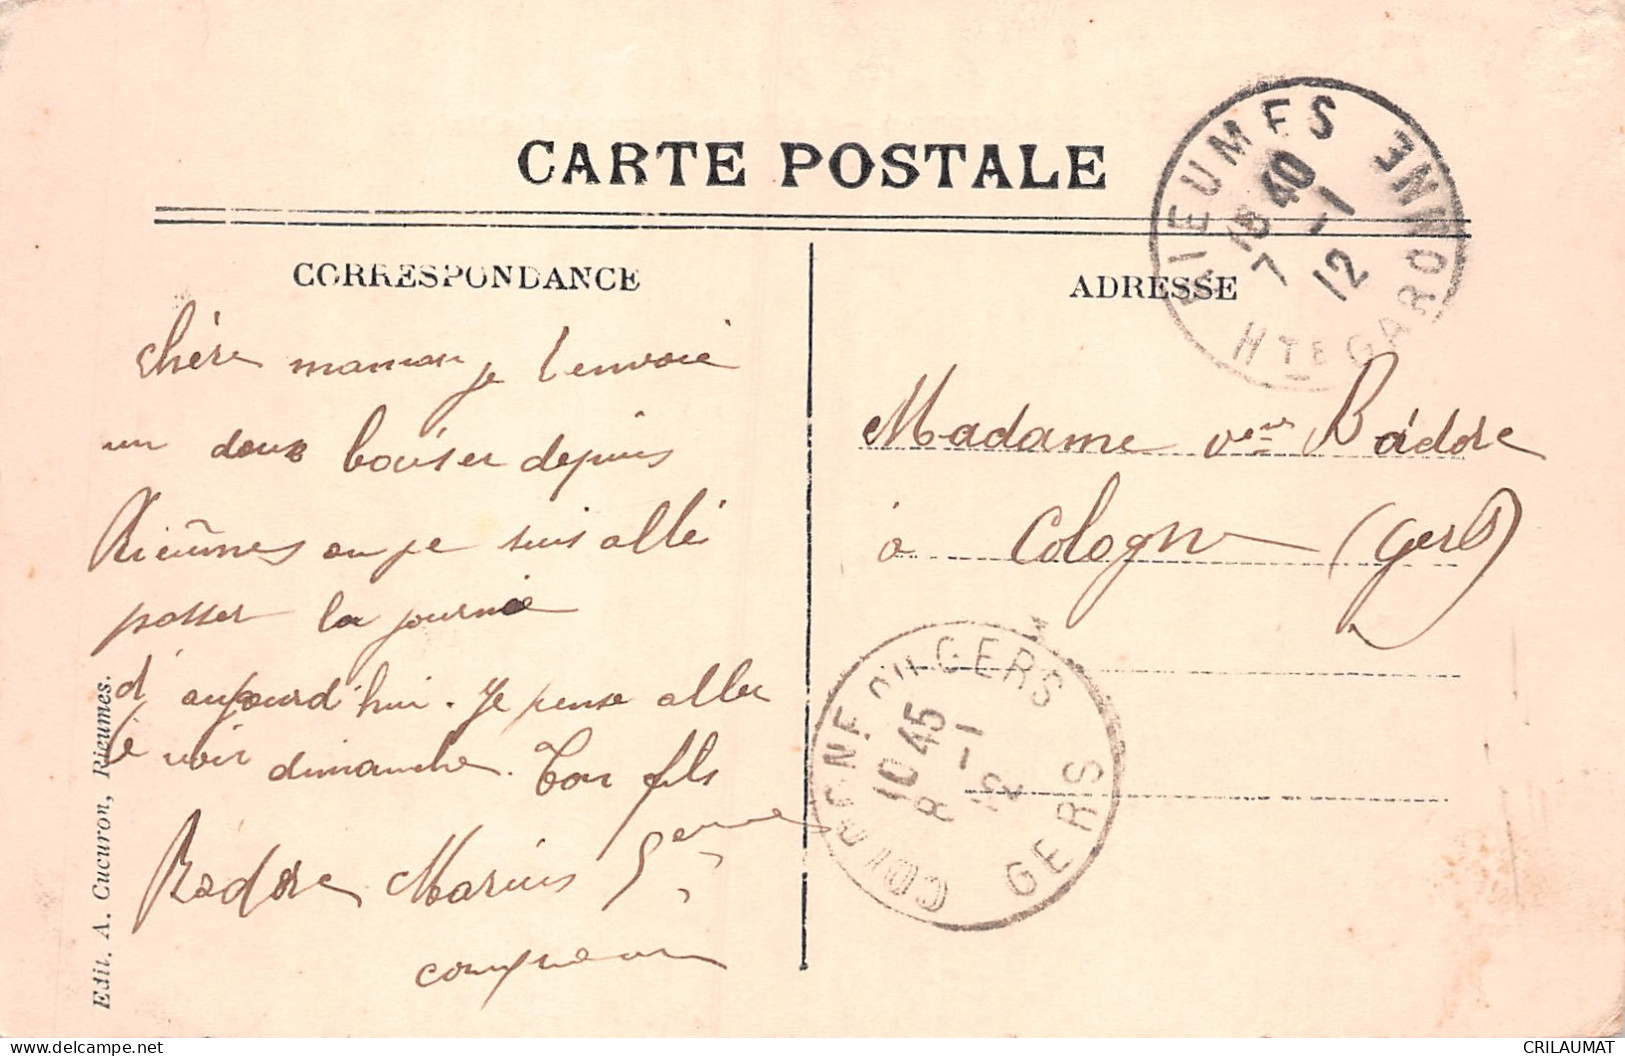 CARTE POSTALE
CORRESPONDANCE
chère maman je t'envoie
un doux baiser depuis
Rieumes ou je suis allé
passer la journée
d'aujourd'hui. Je pense aller
te voir dimanche. Ton fils
Badore Marius
Edit. A. Cucuron, Rieumes.
ADRESSE
Madame veuve Badore
à Cologne (Gers)
RIEUMES
15 40
7 -1
12
HTE GARONNE
COLOGNE DU GERS
10 45
8 -1
12
GERS
www.delcampe.net
CRILAUMAT